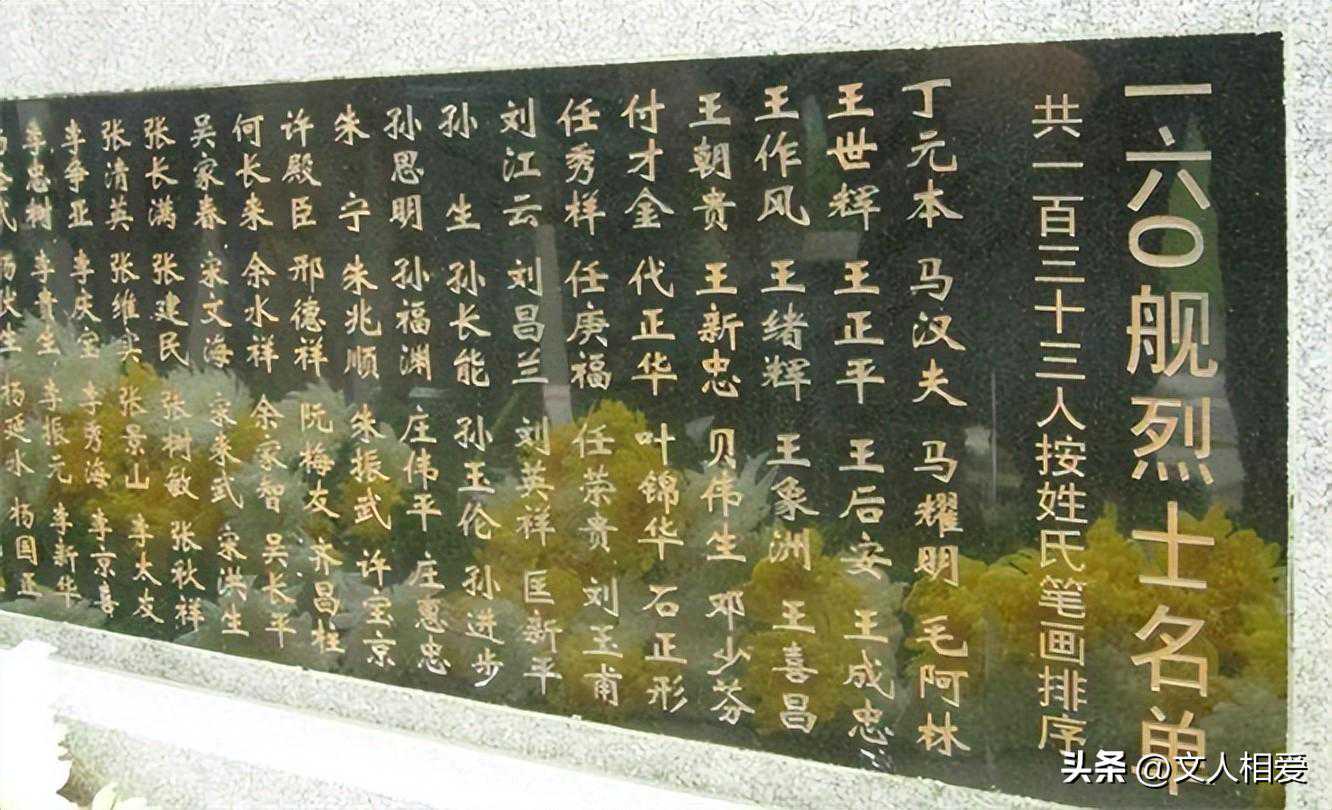 一六〇舰烈士名单
共一百三十三人按姓氏笔画排序
丁元本 马汉夫 马耀明 毛阿林
王世辉 王正平 王后安 王成忠
王作风 王绪辉 王象洲 王喜昌
王朝贵 王新忠 贝伟生 邓少芬
付才金 代正华 叶锦华 石正形
任秀样 任庚福 任荣贵 刘玉甫
刘江云 刘昌兰 刘英祥 匡新平
孙 生 孙长能 孙玉伦 孙进步
孙思明 孙福渊 庄伟平 庄惠忠
朱 宁 朱兆顺 朱振武 许宝京
许殿臣 邢德祥 阮梅友 齐昌柱
何长来 余水祥 余家智 吴长平
吴家春 宋文海 宋来武 宋洪生
张长满 张建民 张树敏 张秋祥
张清英 张维实 张景山 李太友
李争亚 李庆宝 李秀海 李京喜
李忠树 李贵生 李振元 李新华
杨延水 杨国正
头条 @文人相爱